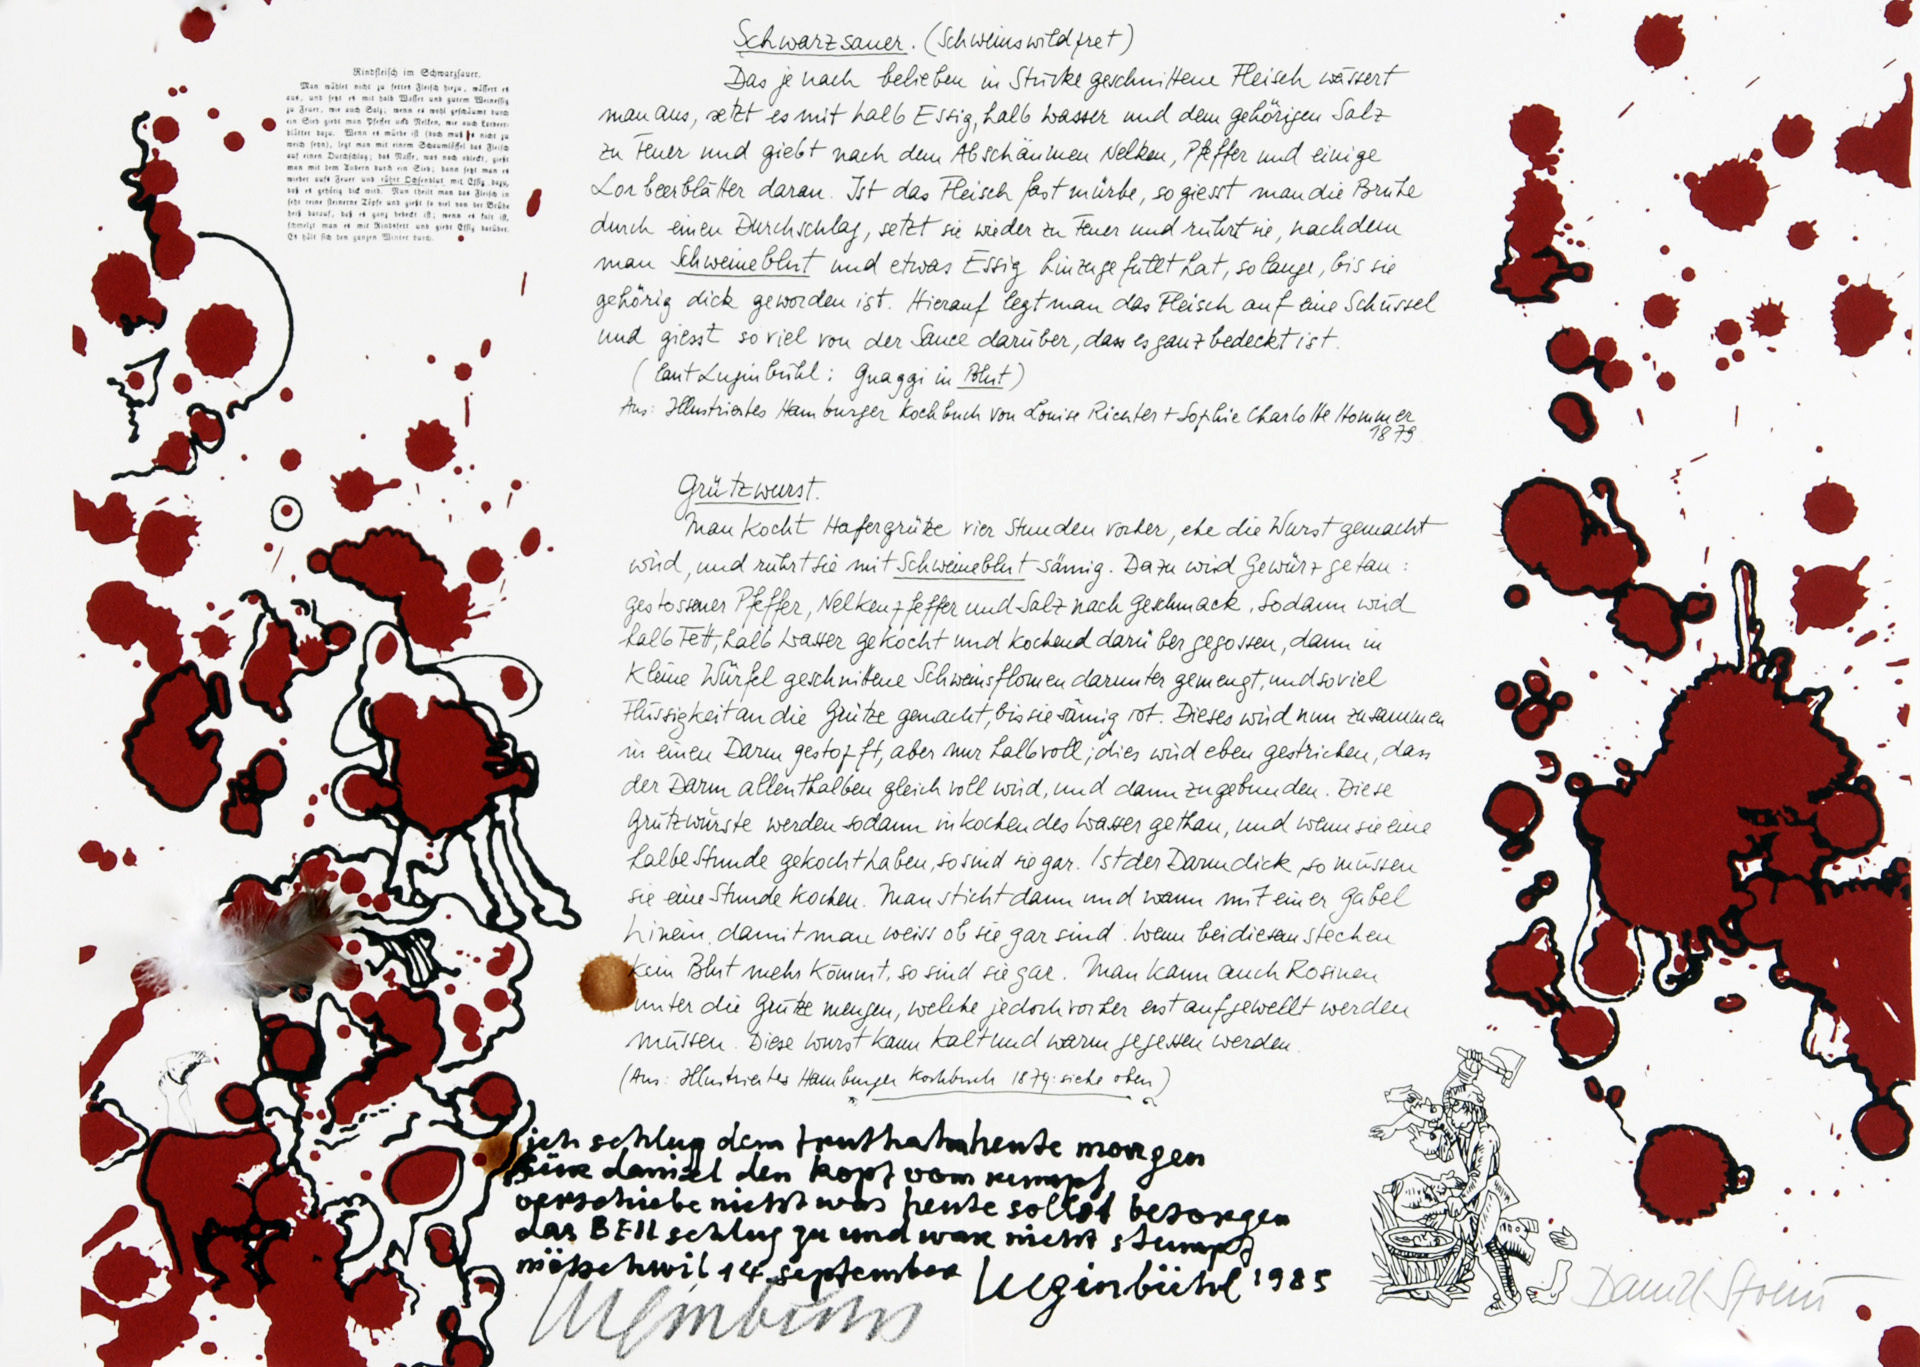 Rindfleisch im Schwarzsauer.
Man wählet nicht zu fettes Fleisch hiezu, wässert es
aus, und setzt es mit halb Wasser und gutem Weinessig
zu Feuer, wie auch Salz; wenn es wohl geschäumt durch
ein Sieb giebt man Pfeffer und Nelken, wie auch Lorbeer-
blätter dazu. Wenn es mürbe ist (doch muß es nicht zu
weich seyn), legt man mit einem Schaumlöffel das Fleisch
auf einen Durchschlag; das Nasse, was noch abläuft, gießt
man mit dem Andern durch ein Sieb; dann setzt man es
wieder aufs Feuer und rührt Ochsenblut mit Essig dazu,
daß es gehörig dick wird. Man theilt man das Fleisch in
sehr reine steinerne Töpfe und gießt so viel von der Brühe
heiß darauf, daß es ganz bedeckt ist; wenn es kalt ist,
schmelzt man es mit Rindsfett und giebt Essig darüber.
Es hält sich den ganzen Winter durch.
Schwarzsauer. (Schweinswildpret)
Das je nach belieben in Stücke geschnittene Fleisch wässert
man aus, setzt es mit halb Essig, halb Wasser und dem gehörigen Salz
zu Feuer und giebt nach dem Abschäumen Nelken, Pfeffer und einige
Lorbeerblätter daran. Ist das Fleisch fast mürbe, so giesst man die Brühe
durch einen Durchschlag, setzt sie wieder zu Feuer und rührt sie, nachdem
man Schweineblut und etwas Essig hinzugefüllt hat, so lange, bis sie
gehörig dick geworden ist. Hierauf legt man das Fleisch auf eine Schüssel
und giesst so viel von der Sauce darüber, dass es ganz bedeckt ist.
(laut Luginbühl: Gnaggi in Blut)
Aus: Illustriertes Hamburger Kochbuch von Louise Richter + Sophie Charlotte Hommer
1879
Grützwurst.
Man kocht Hafergrütze vier Stunden vorher, ehe die Wurst gemacht
wird, und rührt sie mit Schweineblut sämig. Dazu wird Gewürz getan:
gestossener Pfeffer, Nelkenpfeffer und Salz nach Geschmack. Sodann wird
halb Fett, halb Wasser gekocht und kochend darüber gegossen, dann in
kleine Würfel geschnittene Schweinsflomen darunter gemengt, und so viel
Flüssigkeit an die Grütze gemacht, bis sie sämig ist. Dieses wird nun zusammen
in einen Darm gestopft, aber nur halbvoll; dies wird eben gestrichen, dass
der Darm allenthalben gleich voll wird, und dann zugebunden. Diese
Grützwürste werden sodann in kochendes Wasser gethan, und wenn sie eine
halbe Stunde gekocht haben, so sind sie gar. Ist der Darm dick, so müssen
sie eine Stunde kochen. Man sticht dann und wann mit einer Gabel
hinein, damit man weiss ob sie gar sind. Wenn bei diesem stechen
kein Blut mehr kömmt, so sind sie gar. Man kann auch Rosinen
unter die Grütze mengen, welche jedoch vorher erst aufgewellt werden
müssen. Diese Wurst kann kalt und warm gegessen werden.
(Aus: Illustriertes Hamburger Kochbuch 1879: siehe oben)
ich schlug dem truthahn heute morgen
für daniel den kopf vom rumpf
verschiebe nicht was heute sollst besorgen
das BEIL schlug zu und war nicht stumpf
mötschwil 14. september Luginbühl 1985
Luginbühl
Daniel Spoerri